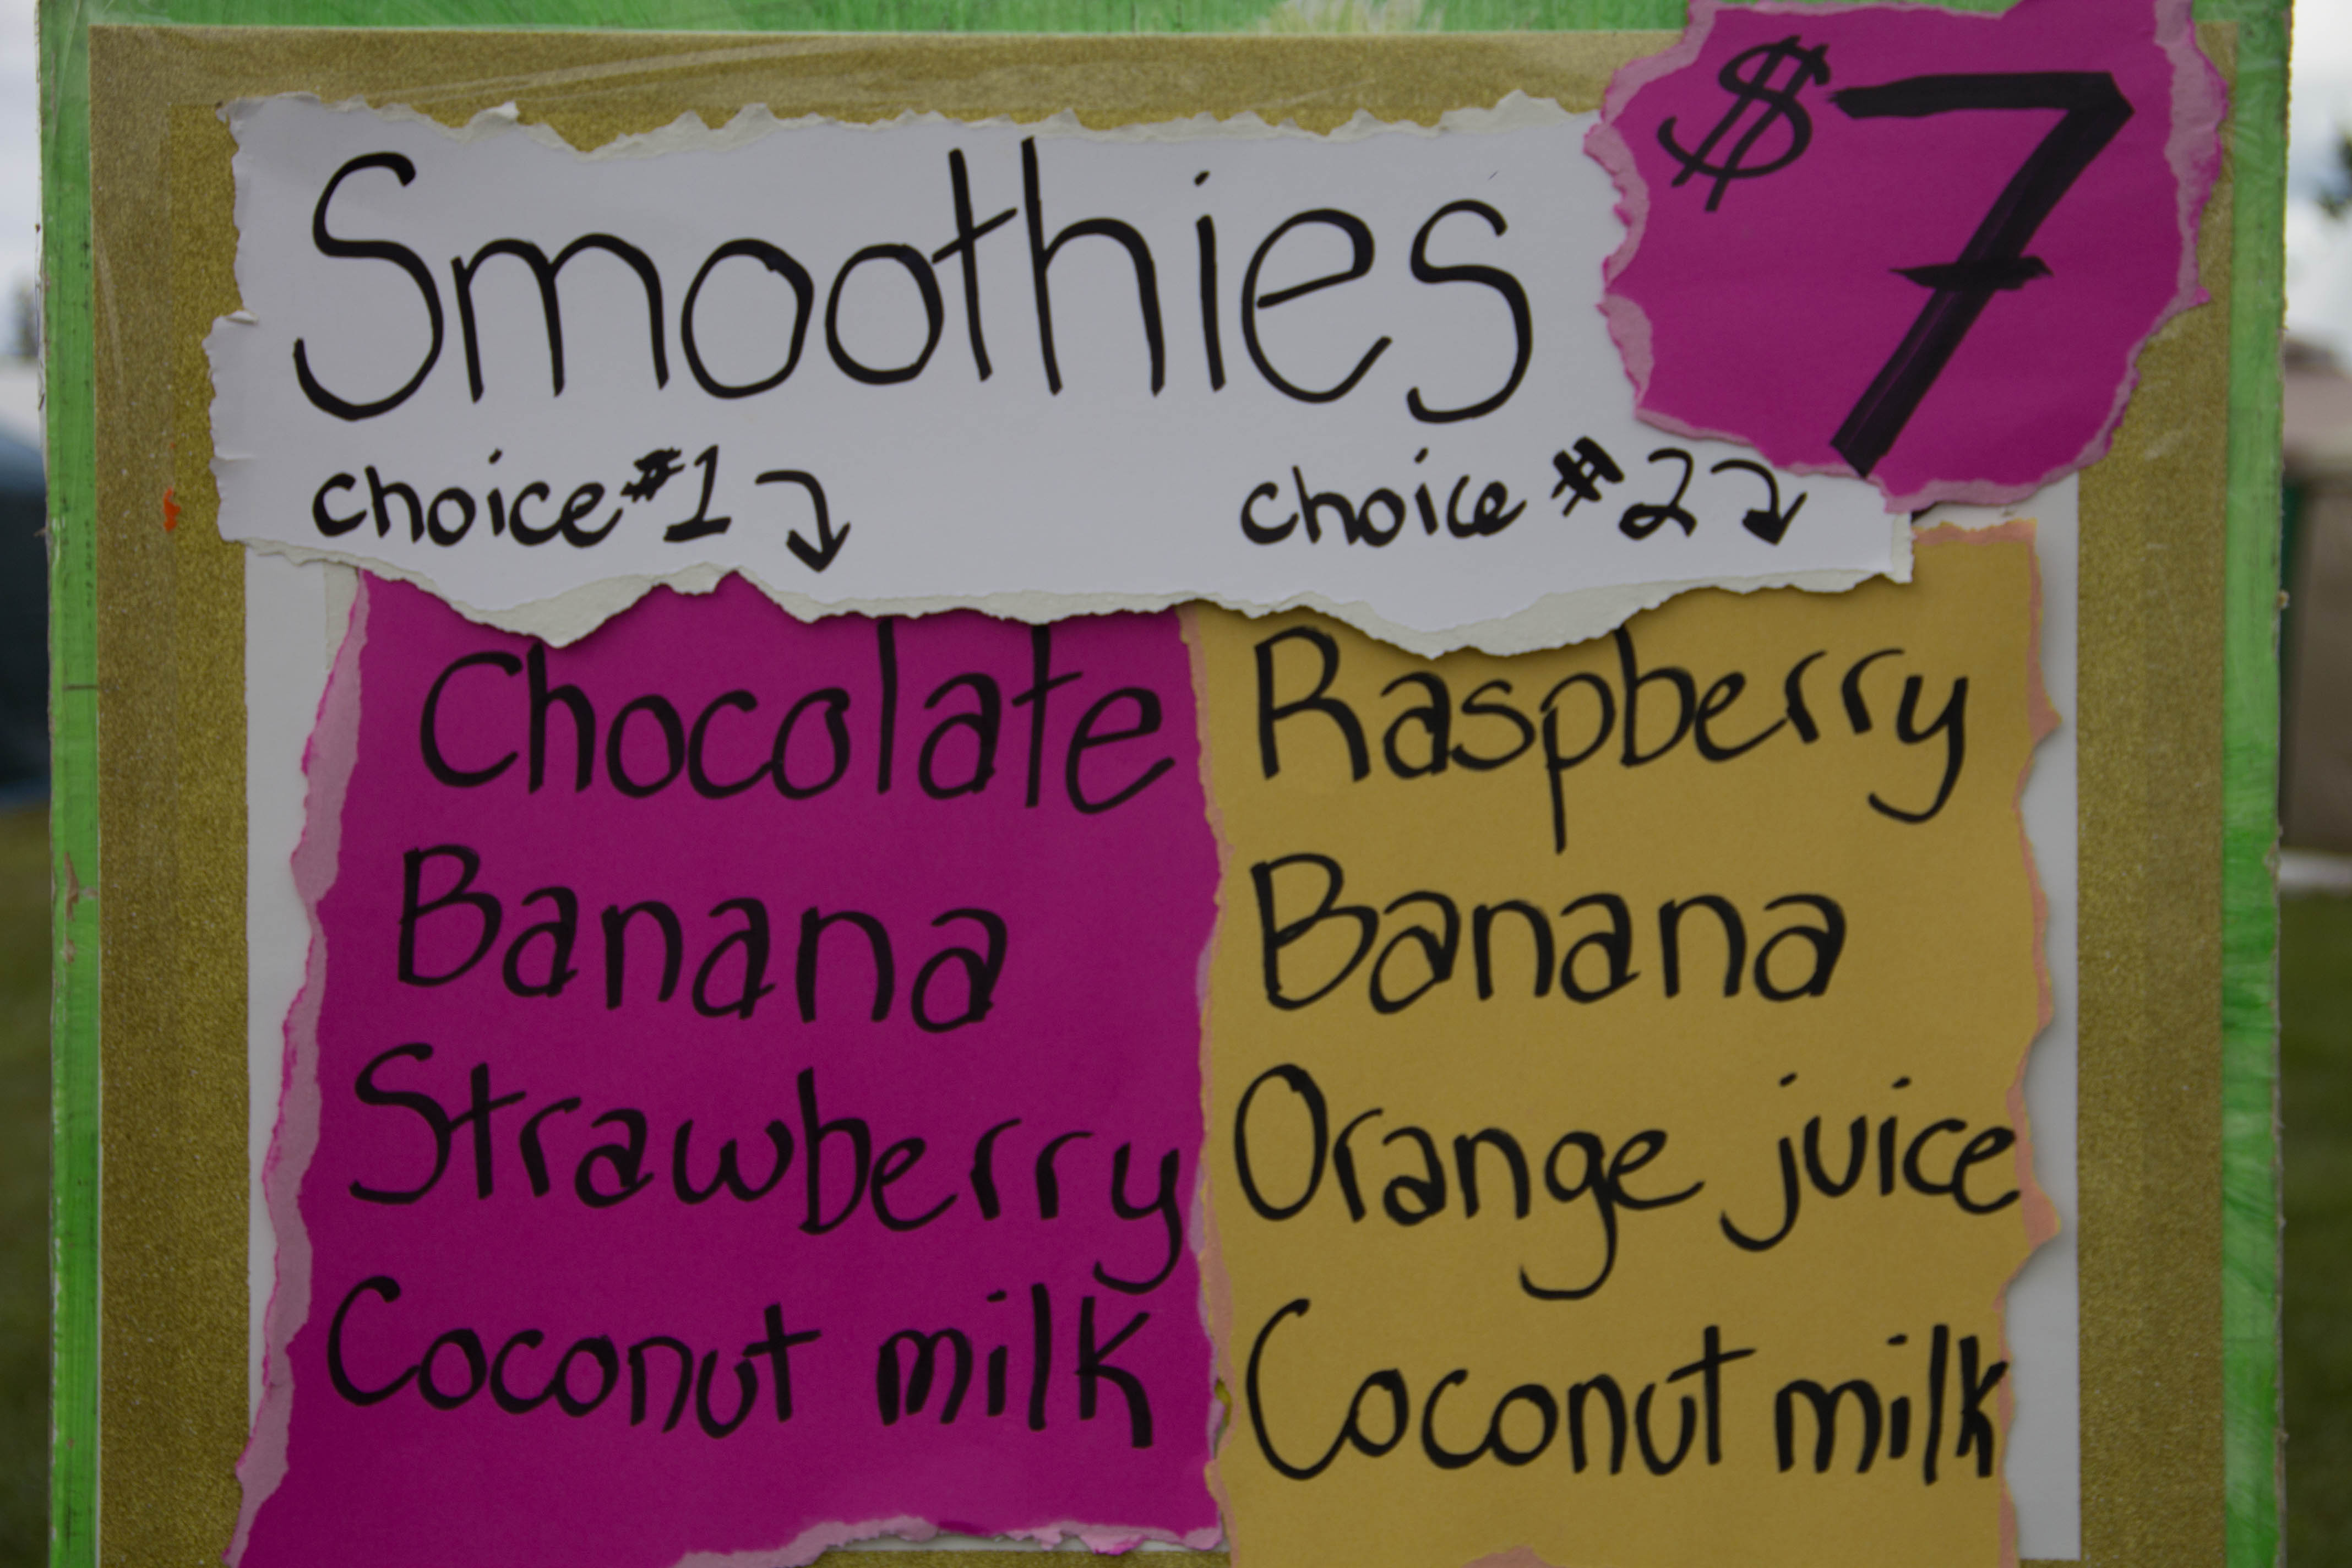 Smoothies
$7
choice #1
Chocolate
Banana
Strawberry
Coconut milk
choice #2
Raspberry
Banana
Orange juice
Coconut milk